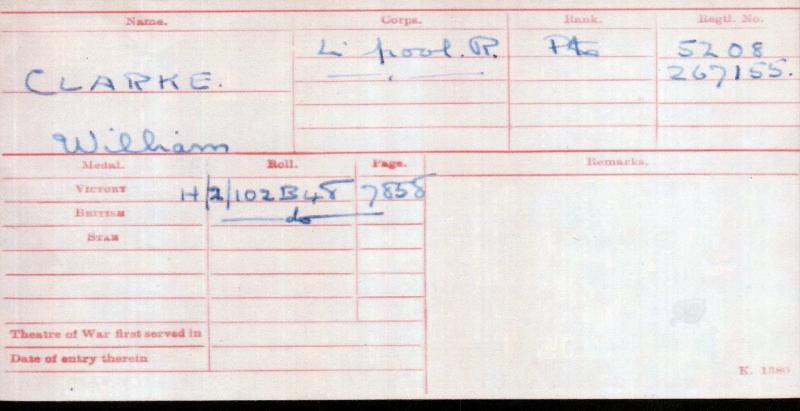 Name. Corps. Rank. Regtl. No.
L'pool. R. Pte 5208
CLARKE. 267155.
William
Medal. Roll. Page. Remarks.
VICTORY H/2/102B48 7858
BRITISH do
STAR
Theatre of War first served in
Date of entry therein
K. 1380